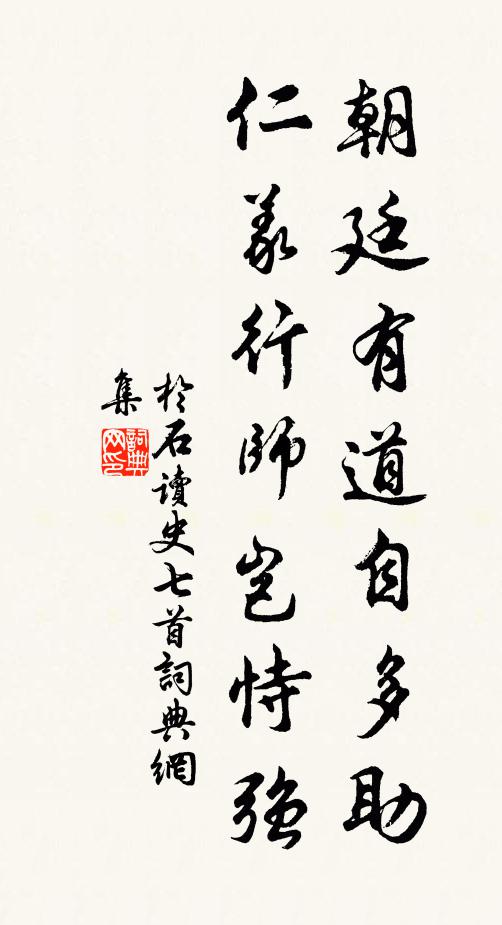 朝廷有道自多助
仁義行師豈恃強
於石讀史七首詞典網
集
詞典
网印